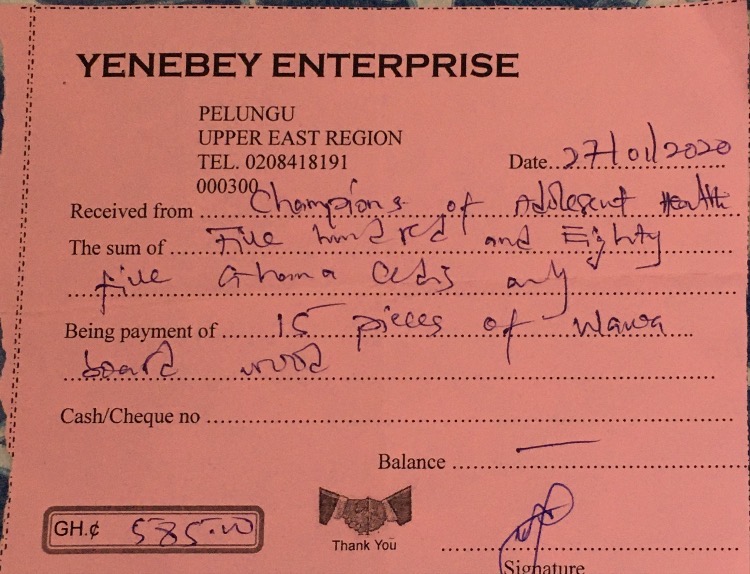 YENEBEY ENTERPRISE
PELUNGU
UPPER EAST REGION
TEL. 0208418191
000300
Date 27/01/2020
Received from Champions of Adolescent Health
The sum of Five hundred and Eighty
five Ghana Cedis only
Being payment of 15 pieces of wawa
board wood
Cash/Cheque no
Balance —
GH.¢ 585.00
Thank You
Signature